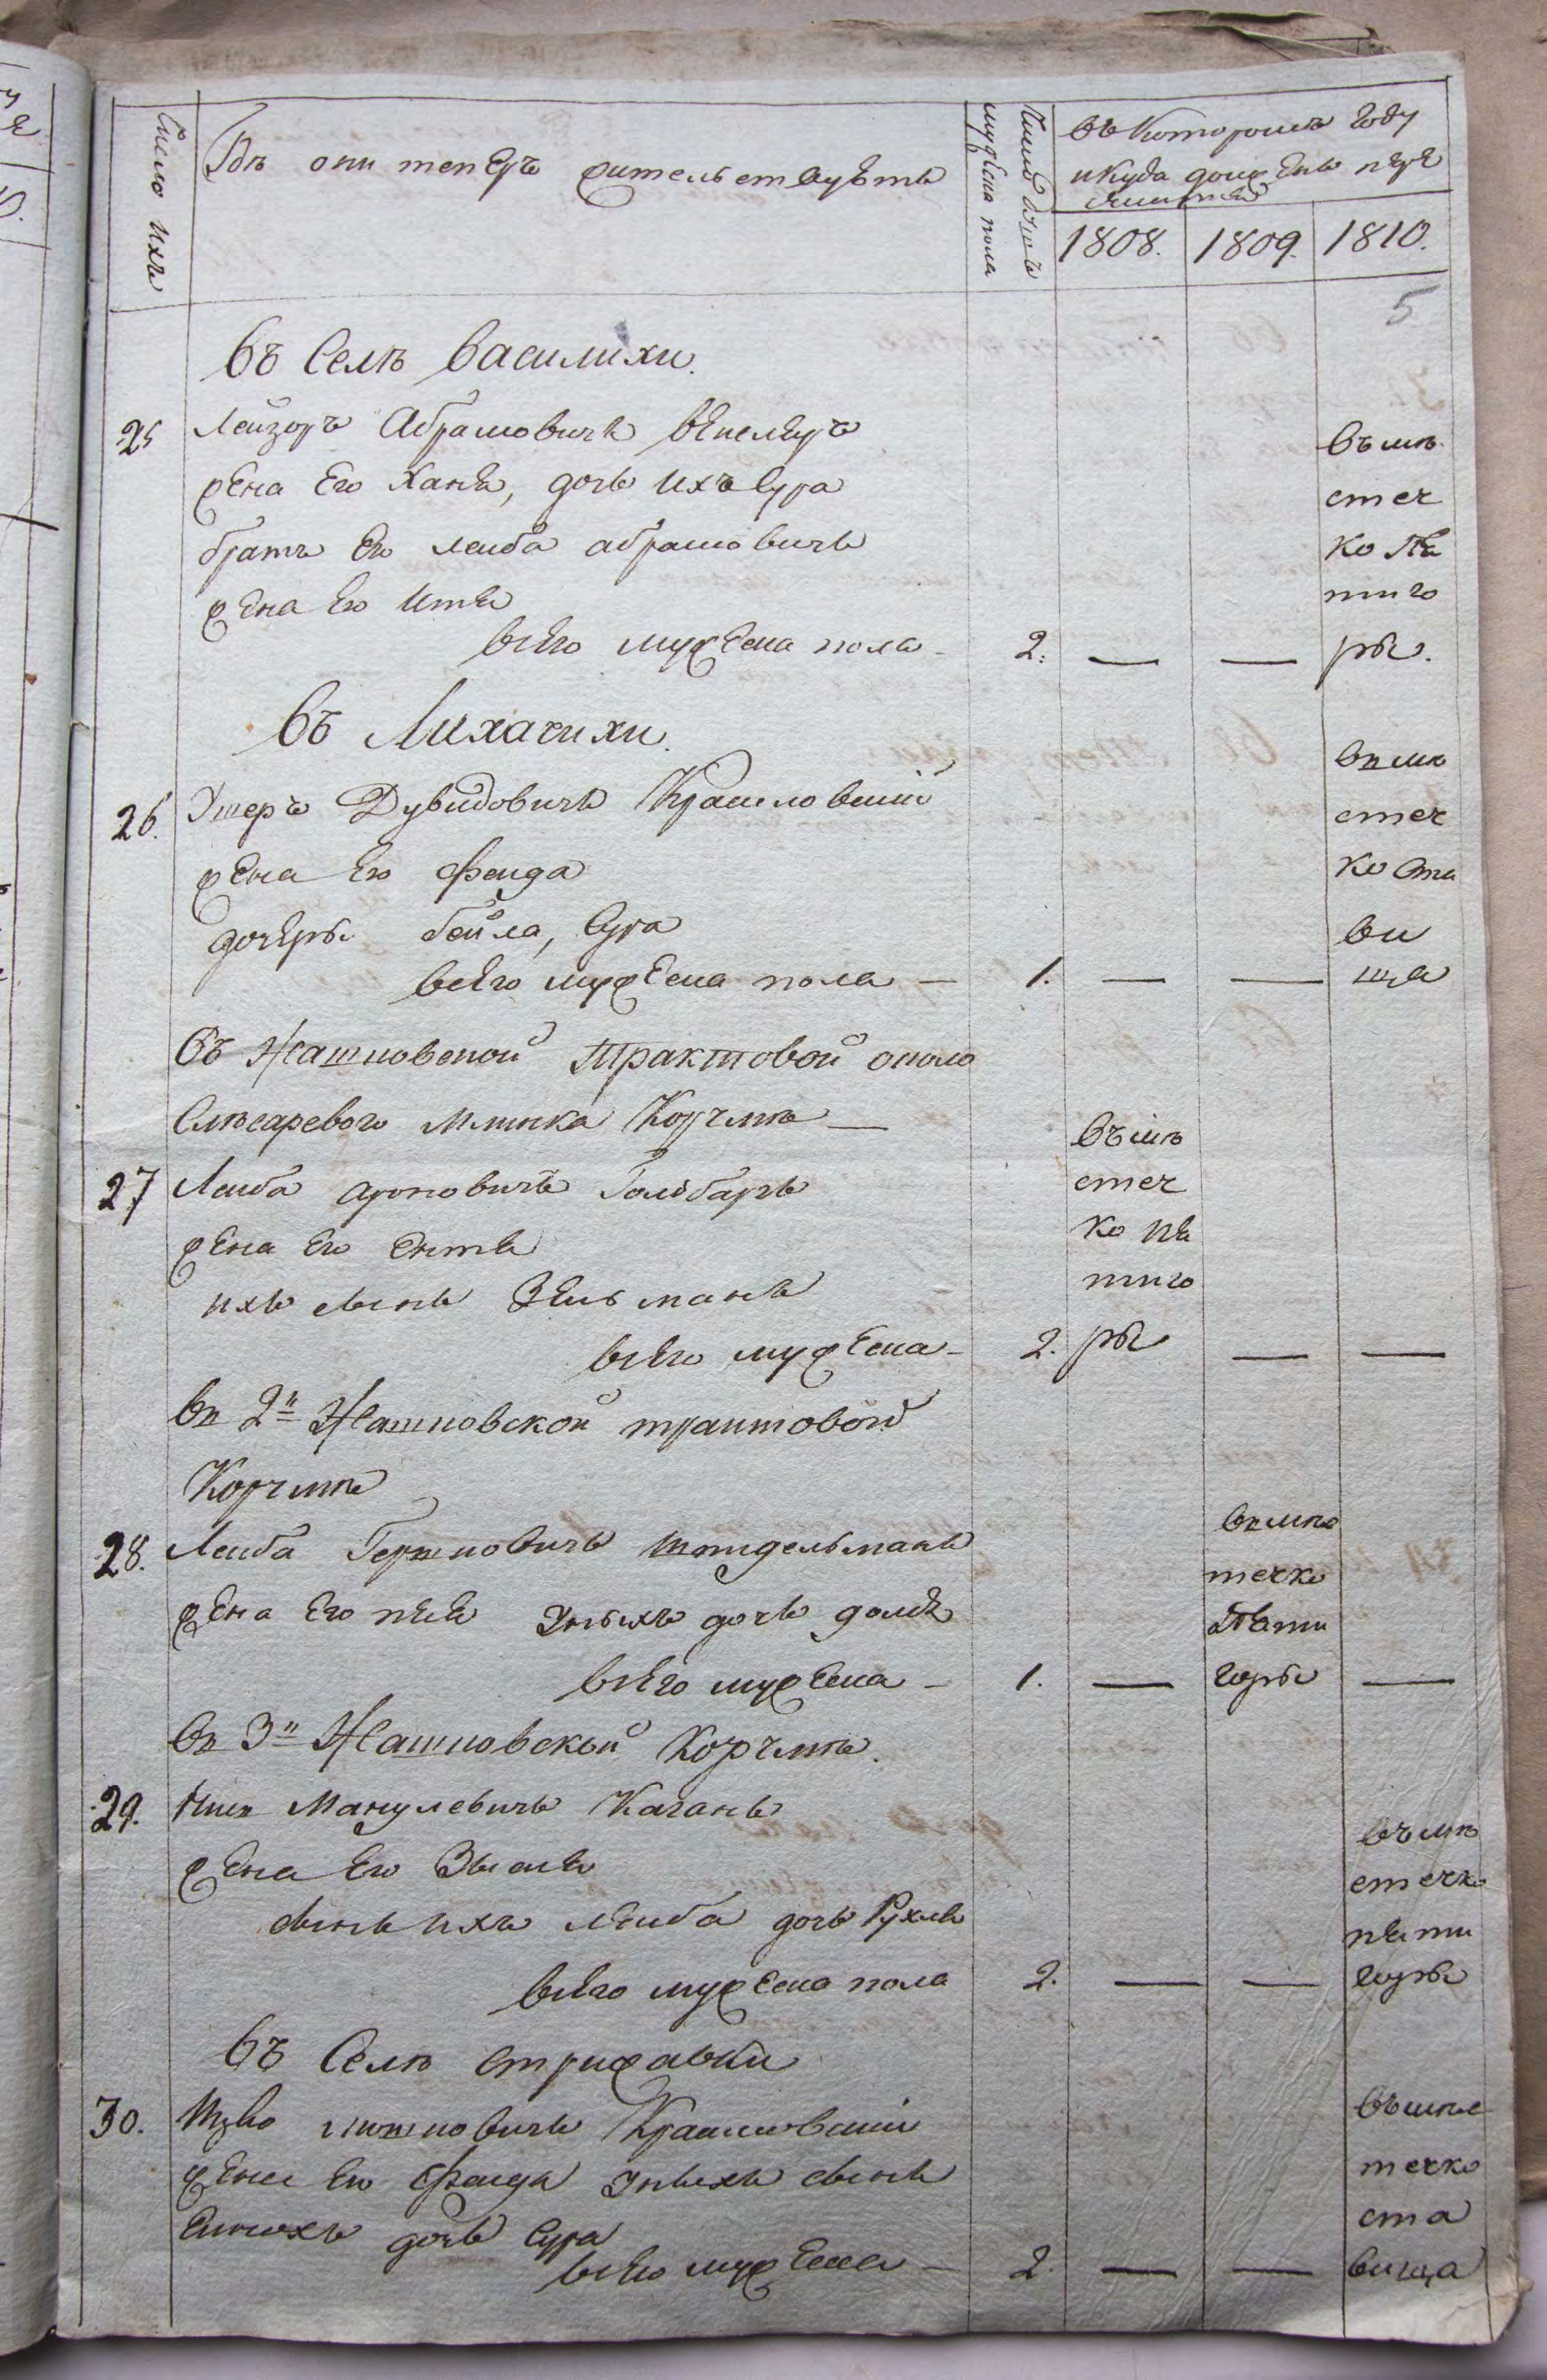 Число ихъ
Гдѣ они теперъ жительствуютъ
Число душъ
мужеска пола
въ которомъ году
и куда должены пере
1808. 1809. 1810.
5
Въ Селѣ Василихи.
25 Лейзоръ Абрамовичъ
жена Его Хана, дочь ихъ Сура
братъ Его Леиба абрамовичъ
жена Его Итя
всего мужеска пола - 2. — —
въ мѣ
стеч
ко Пя
тиго
ры.
Въ Лихачихи.
26. Ушеръ Дувидовичъ Крашловский
жена Его Феига
дочеры Бейла, Сура
всего мужеска пола — 1. — —
въ мѣ
стеч
ко Ста
ви
ща
Въ Жашковской Трактовой около
Слѣсаревого Млинка Корчмѣ —
27 Леиба ароновичъ Голдбаргъ
жена Его Ента
ихъ сынъ Зельманъ
всего мужеска - 2. — —
въ мѣ
стеч
ко пя
тиго
ры
въ 2й Жашковской трактовой
Корчмѣ
28. Леиба Гершковичъ
жена Его нихъ дочь
всего мужеска - 1. — —
въ мѣс
течко
Пяти
горы
въ 3й Жашковской Корчмѣ.
29. Манулевичъ Каганъ
жена Его
сынъ ихъ леиба дочь Рухля
всего мужеска пола 2. — —
въ мѣ
стечко
пяти
горы
Въ Селѣ Стрижавки
30. Ицко Крашловский
жена Его Феига унихъ сынъ
дочь Сура
всего мужеска - 2. — —
въ мѣс
течко
ста
вища